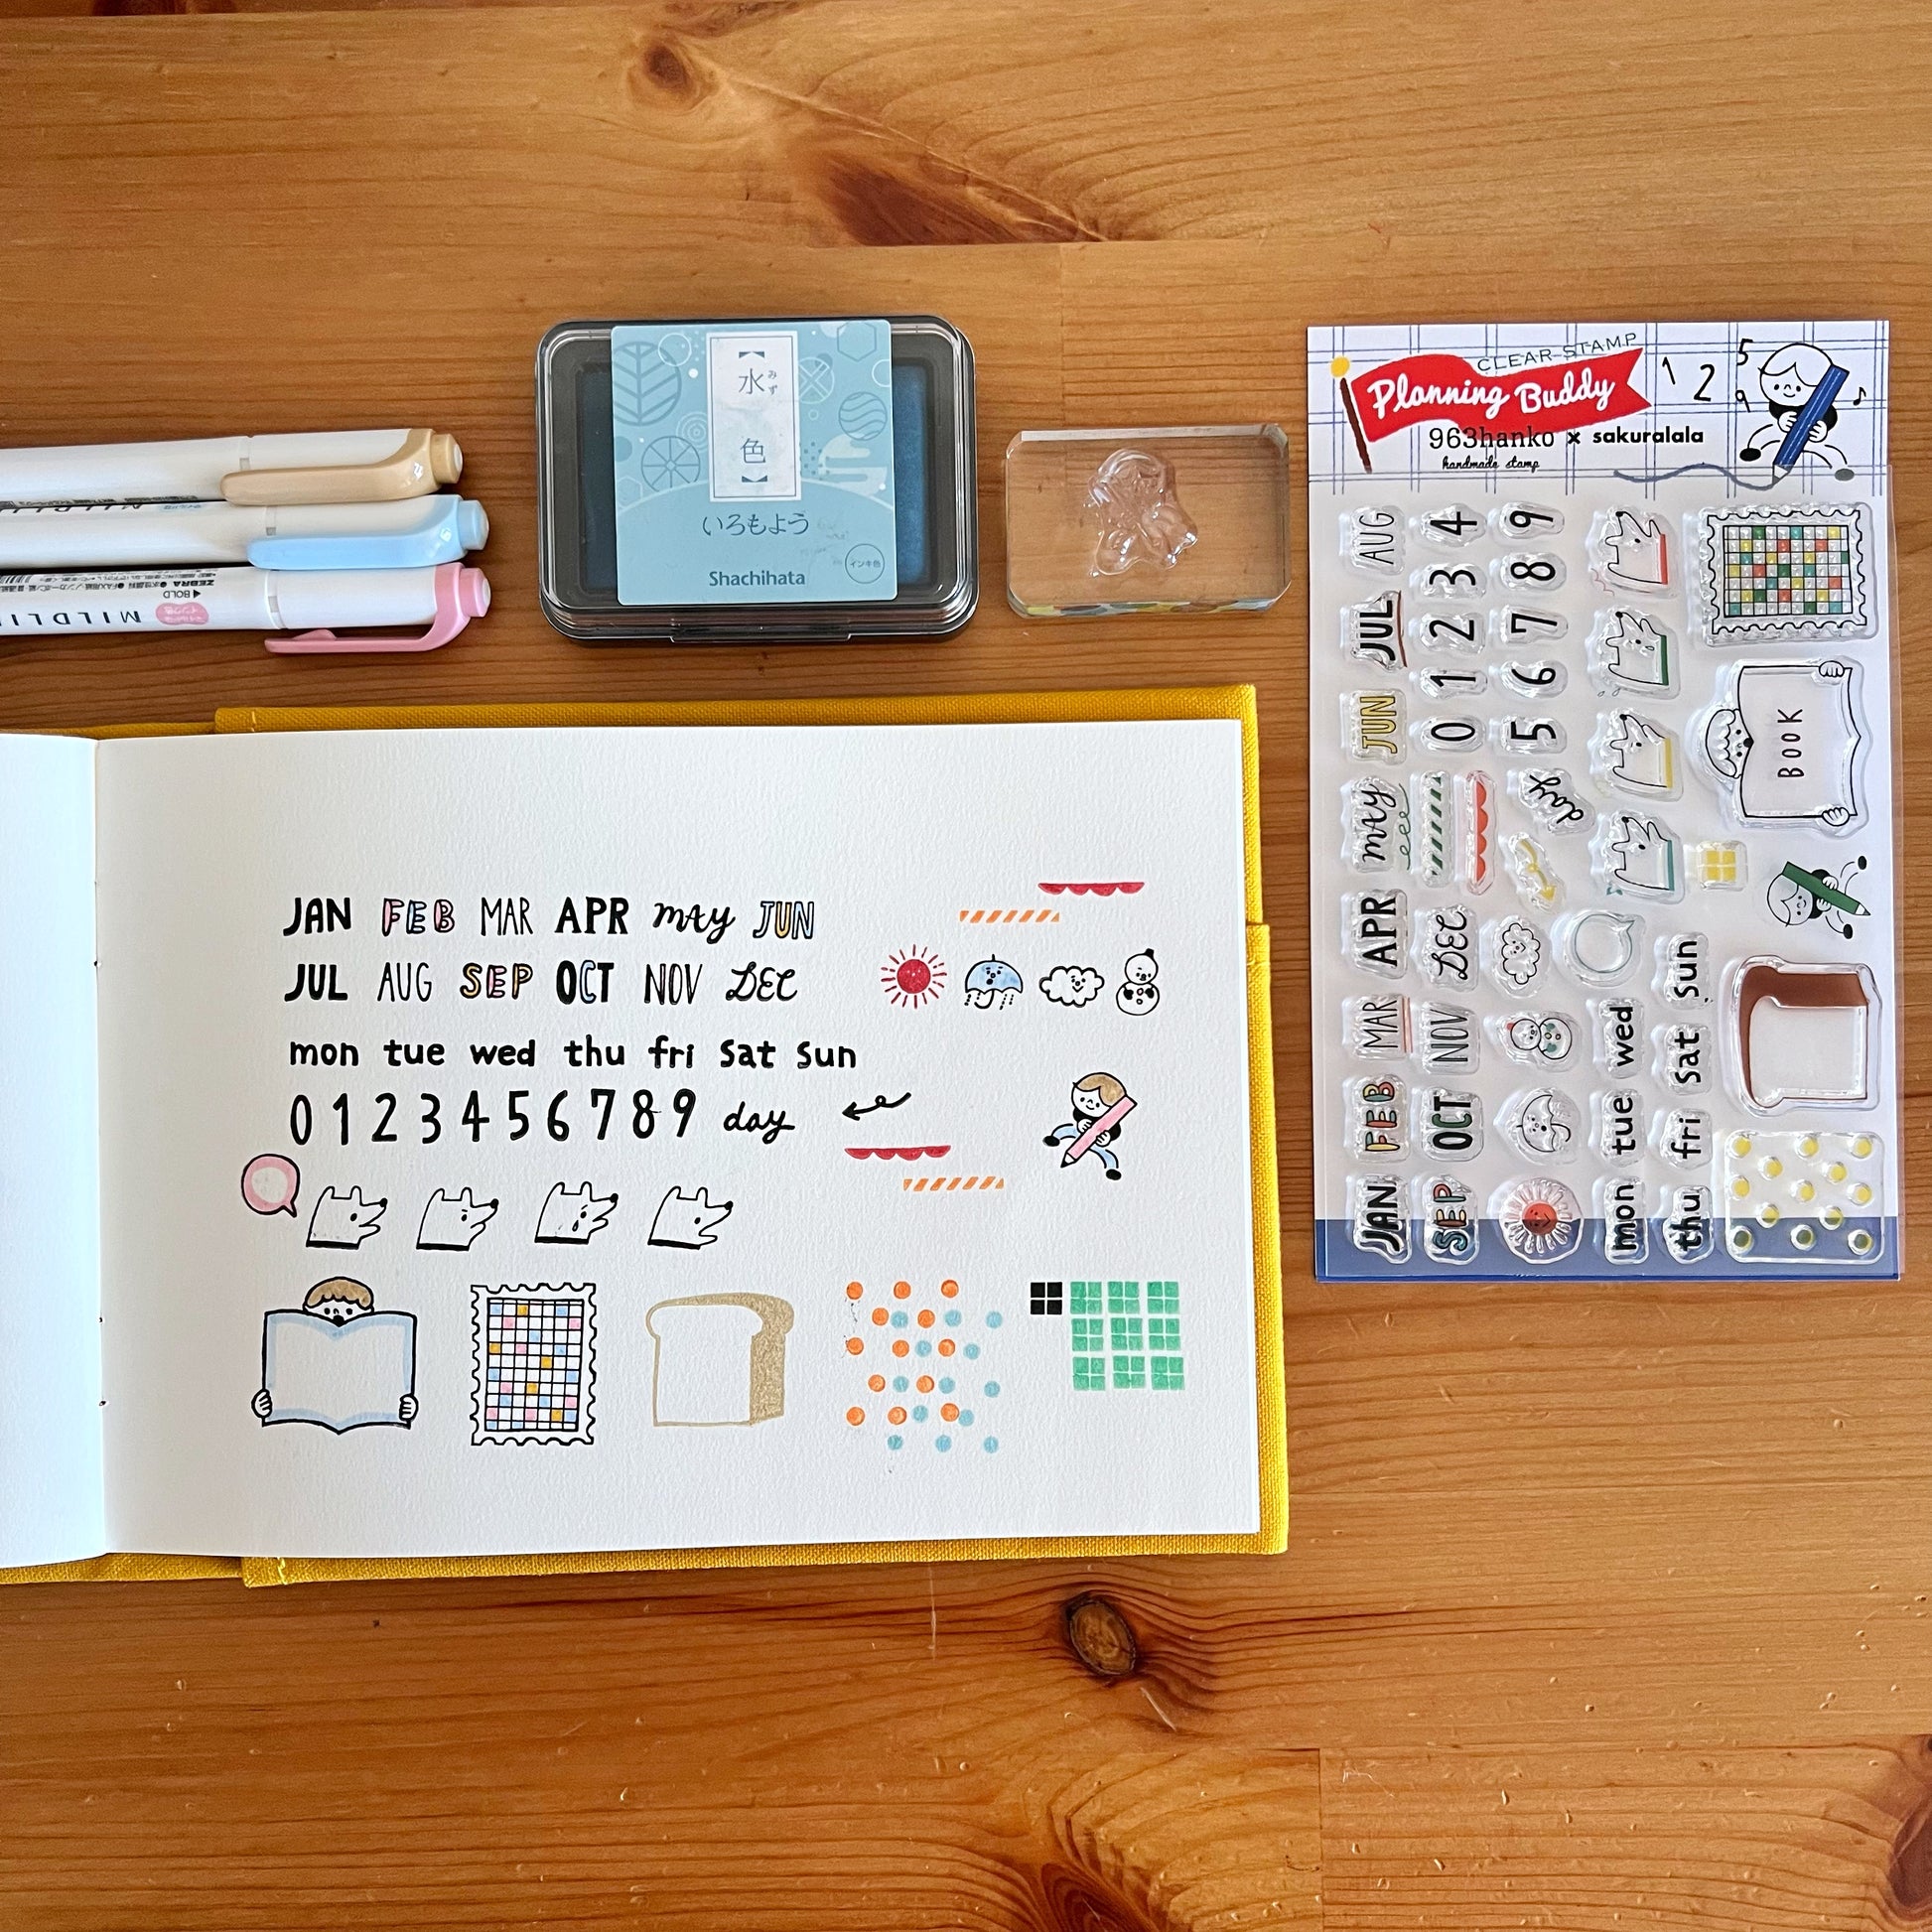 水 みず
色
いろもよう
インキ色
Shachihata
ZEBRA
BOLD
MILDLI
CLEAR STAMP
Planning Buddy
1 2 5 9
963hanko × sakuralala
handmade stamp
AUG 4 9
3 8
JUL 2 7
1 6
JUN 0 5
BOOK
MAY day
APR DEC sun
MAR NOV wed sat
FEB OCT tue fri
JAN SEP mon thu
JAN FEB MAR APR MAY JUN
JUL AUG SEP OCT NOV DEC
mon tue wed thu fri sat sun
0 1 2 3 4 5 6 7 8 9 day